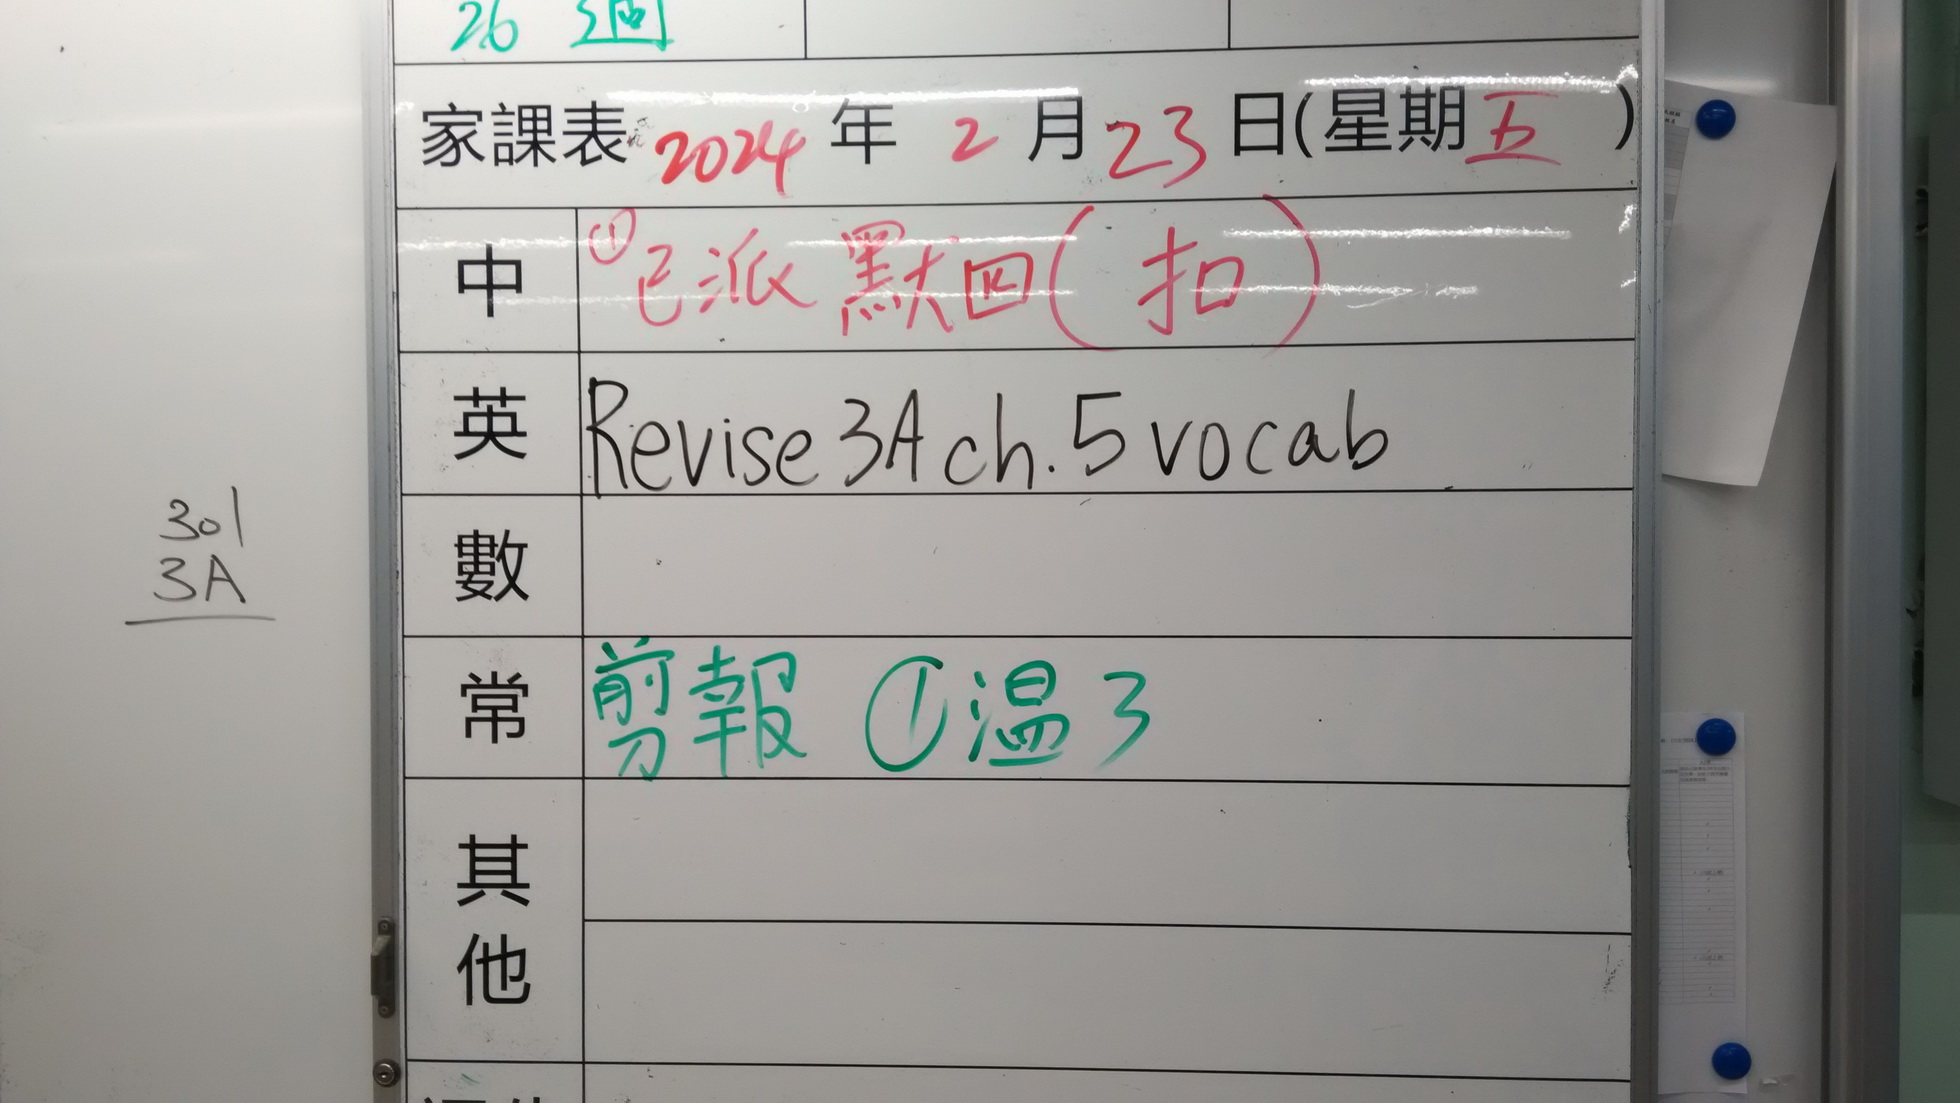 26 週
家課表 2024 年 2 月 23 日(星期五)
中 ①已派默四(扣)
英 Revise 3A ch.5 vocab
301
3A
數
常 剪報 ①温3
其他